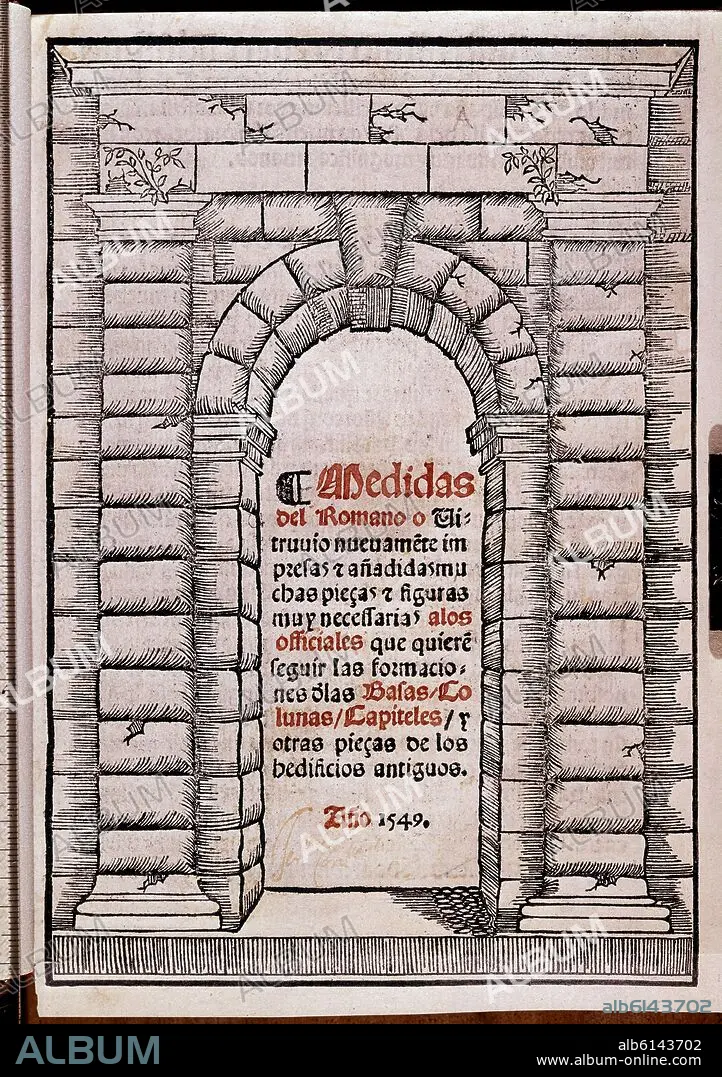 ¶ Medidas
del Romano o Ui⸗
truuio nueuamẽte im
presas ⁊ añadidas mu
chas pieças ⁊ figuras
muy necessarias alos
officiales que quierẽ
seguir las formacio⸗
nes d̃las Basas/Co
lunas/Capiteles/y
otras pieças de los
hedificios antiguos.
Año 1549.
alb6143702
ALBUM
alb6143702
www.album-online.com